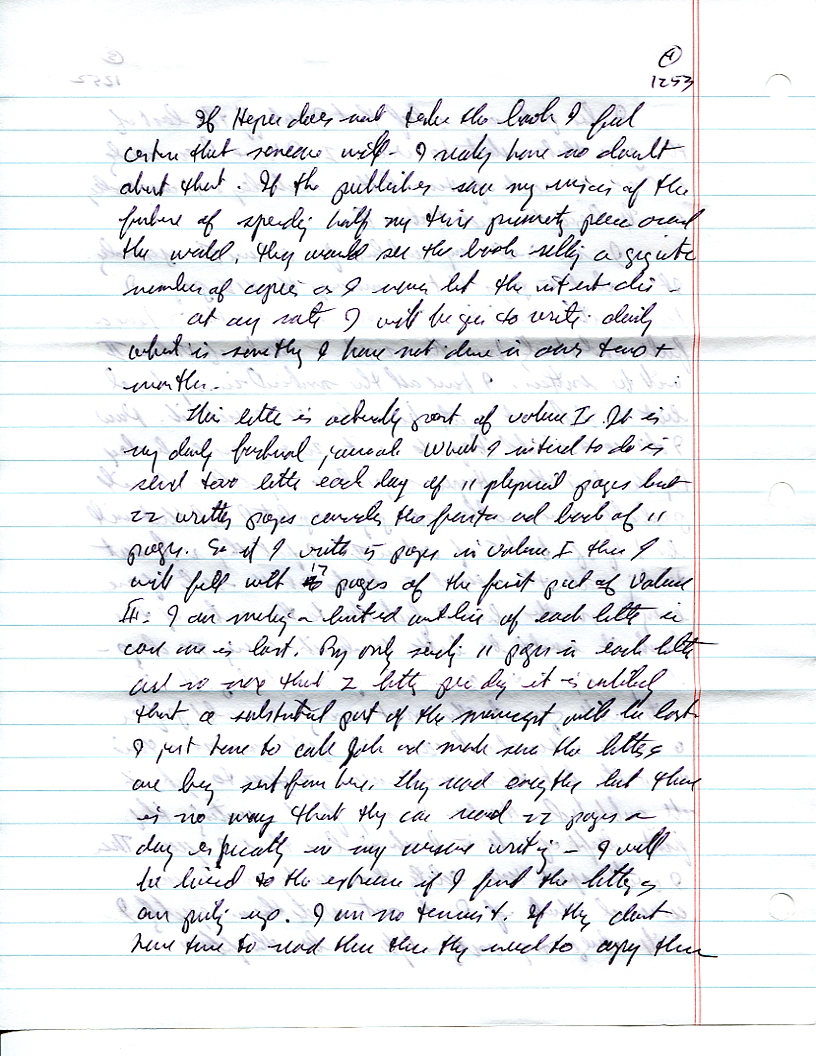 ④
1253
If Harper does not take the book I feel
certain that someone will - I really have no doubt
about that. If the publishers saw my vision of the
future of spending half my time promoting peace around
the world, they would see the book selling a gigantic
number of copies as I never let the interest die -
at any rate I will begin to write daily
what is something I have not done in over two +
months. -
This letter is actually part of volume II. It is
my daily factual journal. What I intend to do is
send two letters each day of 11 physical pages but
22 written pages consider the front and back of 11
pages. So if I write 5 pages in volume I then I
will fill with 17 pages of the first part of Volume
III. I am making a limited outline of each letter in
case one is lost. By only sending 11 pages in each letter
and no more than 2 letters per day it is unlikely
that a substantial part of the manuscript will be lost.
I just have to call and make sure the letters
are being sent from here. They read everything but there
is no way that they can read 22 pages a
day especially in my cursive writing - I will
be livid to the extreme if I find the letters
are piling up. I am no terrorist. If they don't
have time to read them then they need to copy them